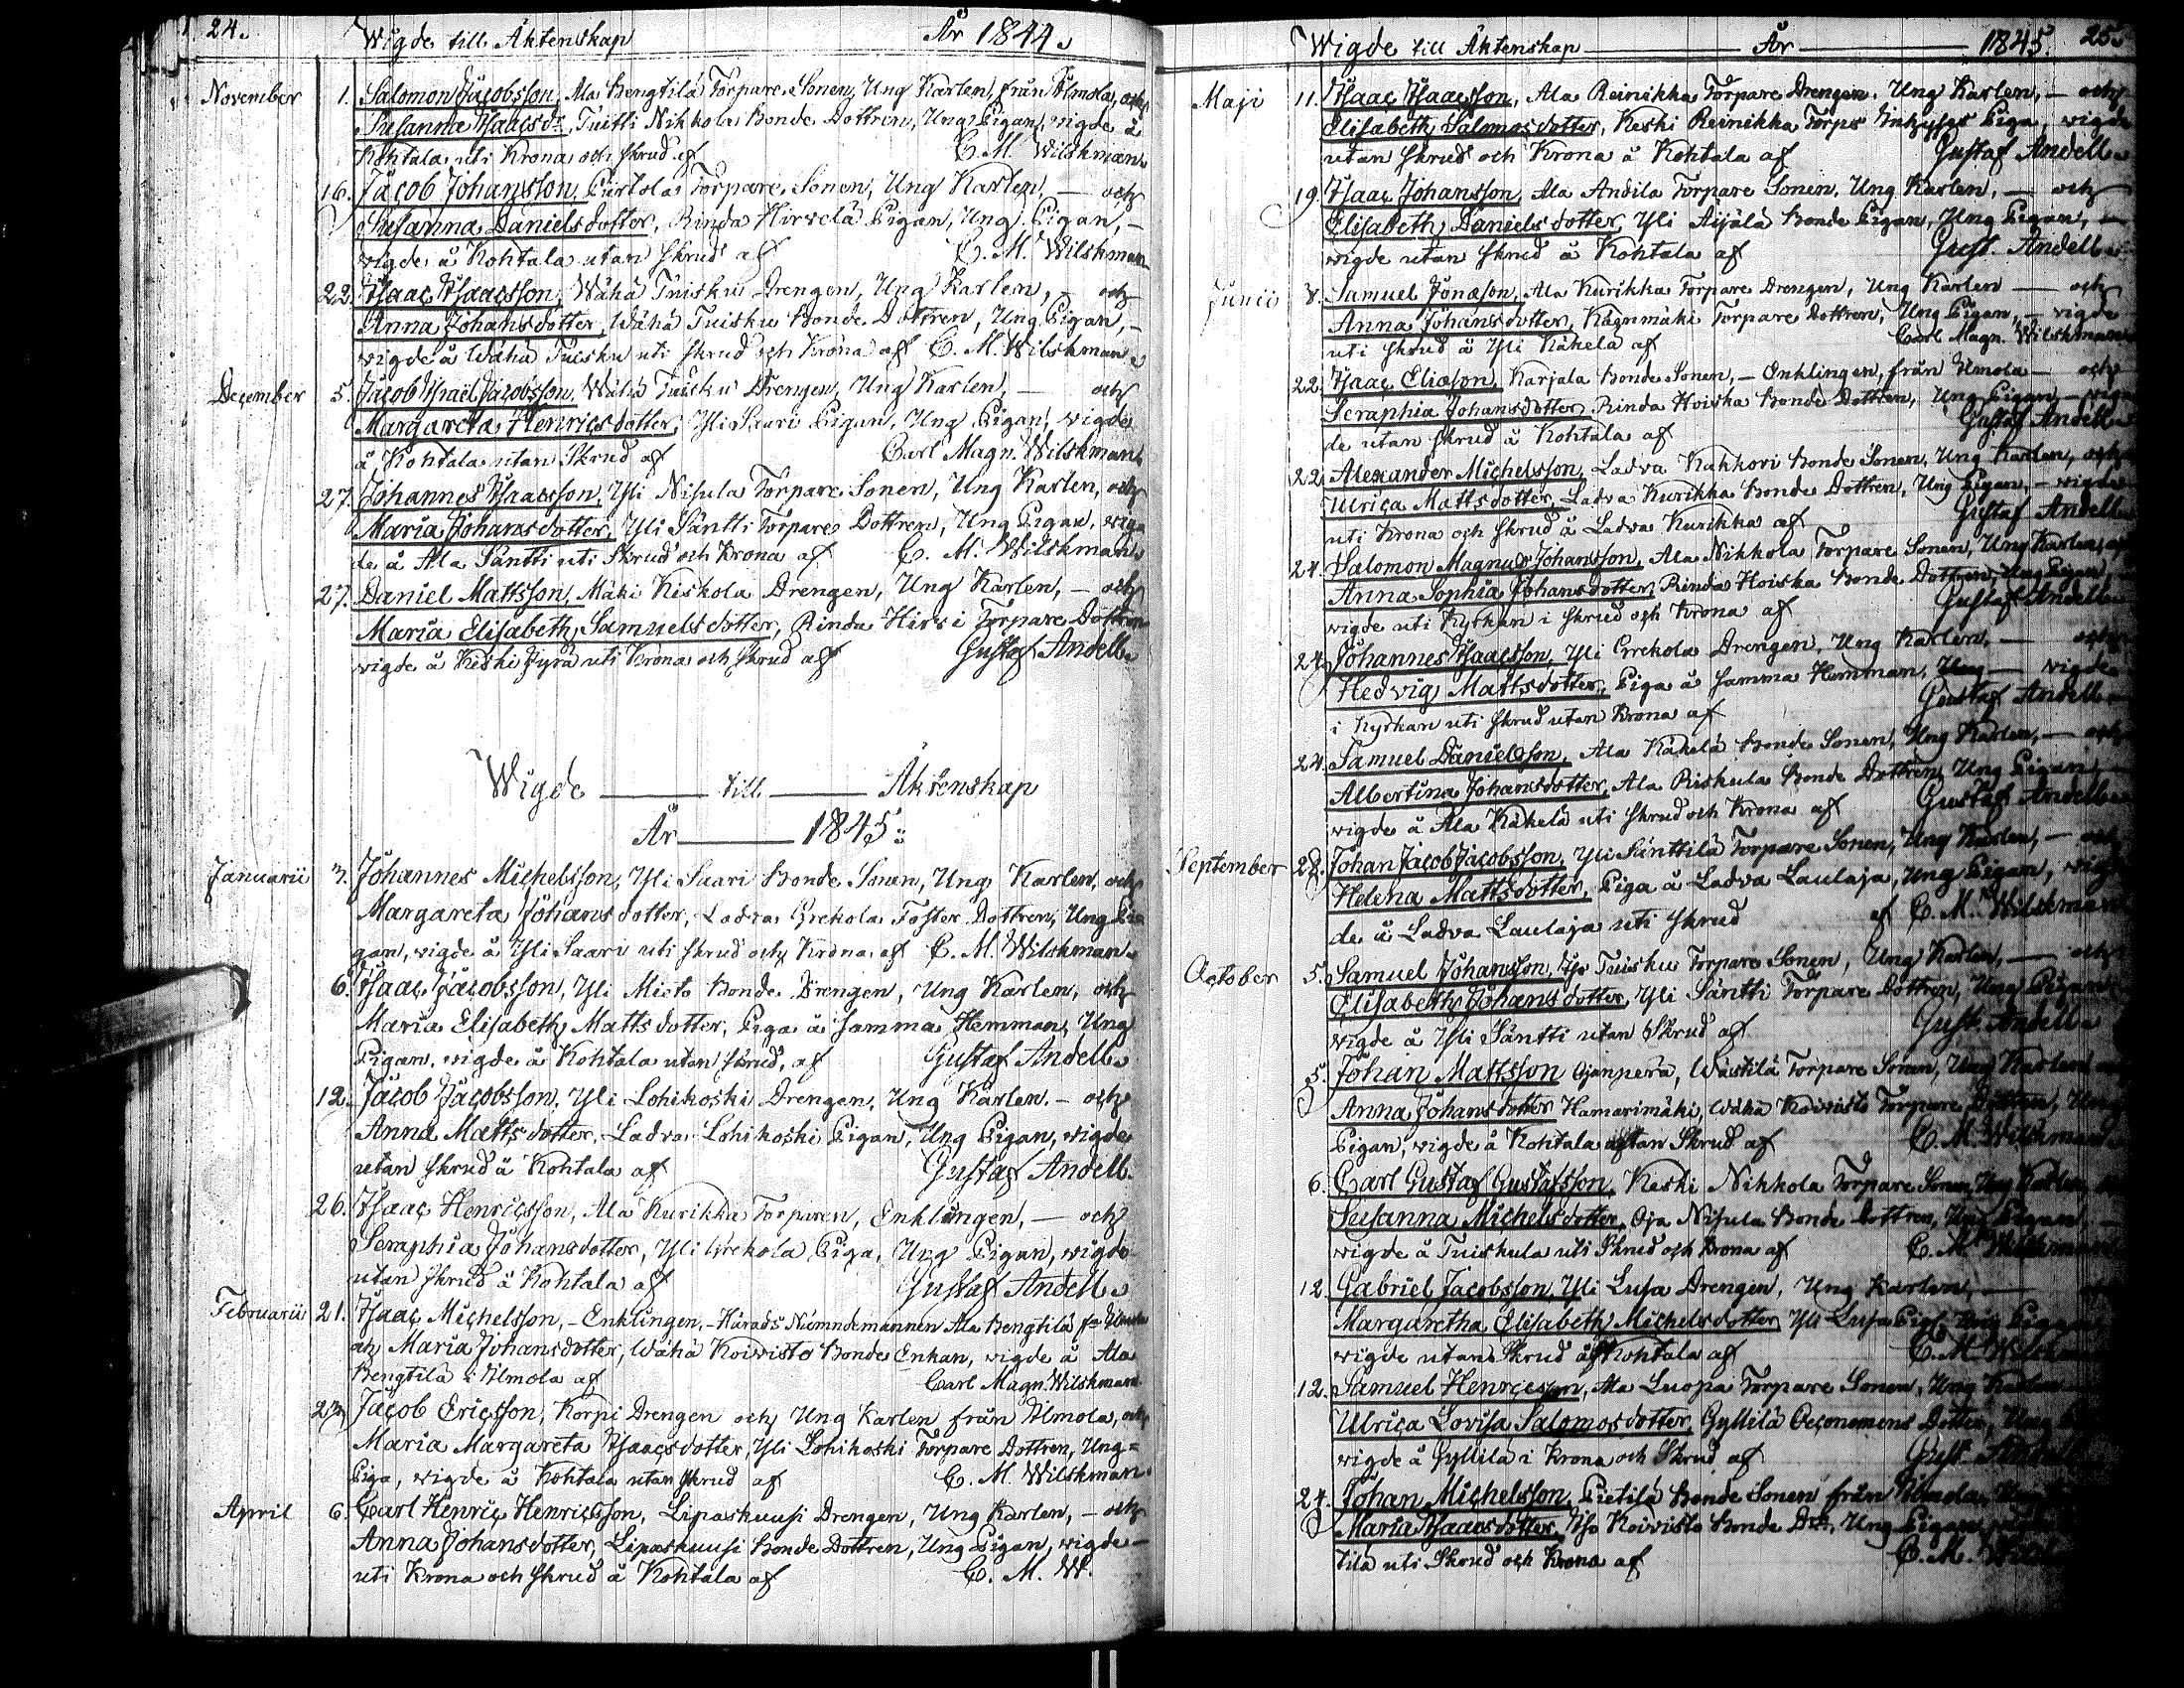 24.
Wigde till Äktenskap År 1844.
November 1. Salomon Jacobsson, Ala Bengtilä Torpare Sonen, Ung Karlen, från Ilmola, och
Susanna Isaacsdr, Tuitti Nikkola Bonde Dottren, Ung Pigan, wigde å
Kohtala uti Krona och skrud af C. M. Wilskman.
16. Jacob Johansson, Torpare Sonen, Ung Karlen, — och
Susanna Danielsdotter, Rinda Hirvelä Pigan, Ung Pigan, —
wigde å Kohtala utan skrud af C. M. Wilskman
22. Isaac Isaacsson, Wähä Tuisku Drengen, Ung Karlen, — och
Anna Johansdotter, Wähä Tuisku Bonde Dottren, Ung Pigan, —
wigde å Wähä Tuisku uti skrud och Krona af C. M. Wilskman.
December 5. Jacob Israel Jacobsson, Wähä Tuisku Drengen, Ung Karlen, — och
Margareta Henricsdotter, Yli Saari Pigan, Ung Pigan, wigde
å Kohtala utan Skrud af Carl Magn. Wilskman.
27. Johannes Isaacsson, Yli Nisula Torpare Sonen, Ung Karlen, och
Maria Johansdotter, Yli Säntti Torpare Dottren, Ung Pigan, wig-
de å Ala Säntti uti Skrud och Krona af C. M. Wilskman.
27. Daniel Mattsson, Mäki Kiskola Drengen, Ung Karlen, — och
Maria Elisabeth Samuelsdotter, Rinda Hirsi Torpare Dottren
wigde å Keski Jyrä uti Krona och skrud af Gustaf Andell.
Wigde — till — Äktenskap
År — 1845.
Januarii 3. Johannes Michelsson, Yli Saari Bonde Sonen, Ung Karlen, och
Margareta Johansdotter, Ladva Grekola Foster Dottren, Ung Pi-
gan, wigde å Yli Saari uti skrud och Krona af C. M. Wilskman.
6. Isaac Jacobsson, Yli Mieto Bonde Drengen, Ung Karlen, och
Maria Elisabeth Mattsdotter, Piga å samma Hemman, Ung
Pigan, wigde å Kohtala utan skrud, af Gustaf Andell.
12. Jacob Jacobsson, Yli Lohikoski Drengen, Ung Karlen. — och
Anna Mattsdotter, Ladva Lohikoski Pigan, Ung Pigan, wigde
utan skrud å Kohtala af Gustaf Andell.
26. Isaac Henricsson, Ala Kurikka Torparen, Enklingen, — och
Seraphia Johansdotter, Yli Grekola Piga, Ung Pigan, wigde
utan skrud å Kohtala af Gustaf Andell.
Februarii 21. Isaac Michelsson, — Enklingen, — Härads Nämndemannen Ala Bengtilä
och Maria Johansdotter, Wähä Koivisto Bonde Enkan, wigde å Ala
Bengtilä i Ilmola af Carl Magn. Wilskman.
23. Jacob Ericsson, Korpi Drengen och Ung Karlen från Ilmola, och
Maria Margareta Isaacsdotter, Yli Lohikoski Torpare Dottren, Ung=
Piga, wigde å Kohtala utan skrud af C. M. Wilskman.
April 6. Carl Henric Henricsson, Lipaskuusi Drengen, Ung Karlen, — och
Anna Johansdotter, Lipaskuusi Bonde Dottren, Ung Pigan, wigde —
uti Krona och skrud å Kohtala af C. M. W.
Wigde till Äktenskap — År — 1845. 25.
Maji 11. Isaac Isaacsson, Ala Reinikka Torpare Drengen, Ung Karlen, — och
Elisabeth Salomosdotter, Keski Reinikka Torps Inhyses Piga, wigde
utan skrud och Krona å Kohtala af Gustaf Andell.
19. Isaac Johansson, Ala Andila Torpare Sonen, Ung Karlen, — och
Elisabeth Danielsdotter, Yli Äijälä Bonde Pigan, Ung Pigan, —
wigde utan skrud å Kohtala af Gust. Andell.
Junii 8. Samuel Jonæson, Ala Kurikka Torpare Drengen, Ung Karlen — och
Anna Johansdotter, Kägnmäki Torpare Dottren, Ung Pigan, — wigde
uti skrud å Yli Käkelä af Carl Magn. Wilskman
22. Isaac Eliæson, Karjala Bonde Sonen, — Enklingen, från Ilmola — och
Seraphia Johansdotter, Rinda Hoiska Bonde Dottren, Ung Pigan, — wig-
de utan skrud å Kohtala af Gustaf Andell.
22. Alexander Michelsson, Ladva Kahkori Bonde Sonen, Ung Karlen, och
Ulrica Mattsdotter, Ladva Kurikka Bonde Dottren, Ung Pigan, — wigde
uti Krona och skrud å Ladva Kurikka af Gustaf Andell
24. Salomon Magnus Johansson, Ala Nikkola Torpare Sonen, Ung Karlen,
Anna Sophia Johansdotter, Rinda Hoiska Bonde Dottren, Ung Pigan
wigde uti Kyrkan i skrud och Krona af Gustaf Andell
24. Johannes Isaacsson, Yli Grekola Drengen, Ung Karlen, — och
Hedvig Mattsdotter, Piga å samma Hemman, Ung — wigde
i Kyrkan uti skrud utan Krona af Gustaf Andell.
24. Samuel Danielsson, Ala Käkelä Bonde Sonen, Ung Karlen, — och
Albertina Johansdotter, Ala Riskula Bonde Dottren, Ung Pigan
wigde å Ala Käkelä uti skrud och Krona af Gustaf Andell
September 28. Johan Jacob Jacobsson, Yli Säntilä Torpare Sonen, Ung Karlen, — och
Helena Mattsdotter, Piga å Ladva Laulaja, Ung Pigan, wig-
de å Ladva Laulaja uti skrud af C. M. Wilskman
October 5. Samuel Johansson, Iso Tuisku Torpare Sonen, Ung Karlen, — och
Elisabeth Johansdotter, Yli Säntti Torpare Dottren, Ung Pigan
wigde å Yli Säntti utan Skrud af Gust. Andell.
5. Johan Mattsson Ojanperä, Wästilä Torpare Sonen, Ung Karlen
Anna Johansdotter Hamarimäki, Wähä Koivisto Torpare Dottren,
Pigan, wigde å Kohtala utan Skrud af C. M. Wilskman
6. Carl Gustaf Gustafsson, Keski Nikkola Torpare Sonen, Ung Karlen
Susanna Michelsdotter, Oja Nisula Bonde Dottren, Ung Pigan
wigde å Tuiskula uti Skrud och Krona af C. M. Wilskman
12. Gabriel Jacobsson, Yli Lusa Drengen, Ung Karlen, —
Margaretha Elisabeth Michelsdotter, Yli Lusa
wigde utan Skrud å Kohtala af C. M.
12. Samuel Henricsson, Ala Luopa Torpare Sonen, Ung Karlen
Ulrica Lovisa Salomosdotter, Gyllilä Oeconomens Dotter, Ung
wigde å Gyllilä i Krona och Skrud af Gust. Andell
24. Johan Michelsson, Pietilä Bonde Sonen från Ilmola,
Maria Isaacsdotter, Iso Koivisto Bonde Ung Pigan,
tilä uti Skrud och Krona af C. M.